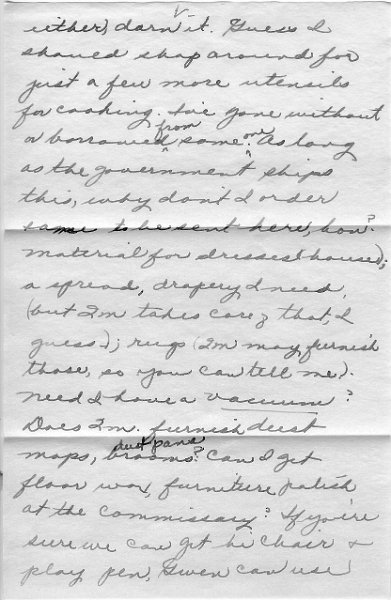 V-
either, darn it. Guess I
should shop around for
just a few more utensils
for cooking. I've gone without
or borrowed from some one. As long
as the government ships
this, why don't I order
same to be sent here, hon?
material for dresses (house);
a spread, drapery I need,
(but 2m takes care of that, I
guess); rugs (2m may furnish
those, so you can tell me).
Need I have a vacuum?
Does 2m. furnish dust
mops, brooms? dust pans Can I get
floor wax, furniture polish
at the commissary? If you're
sure we can get hi chair &
play pen, Gwen can use